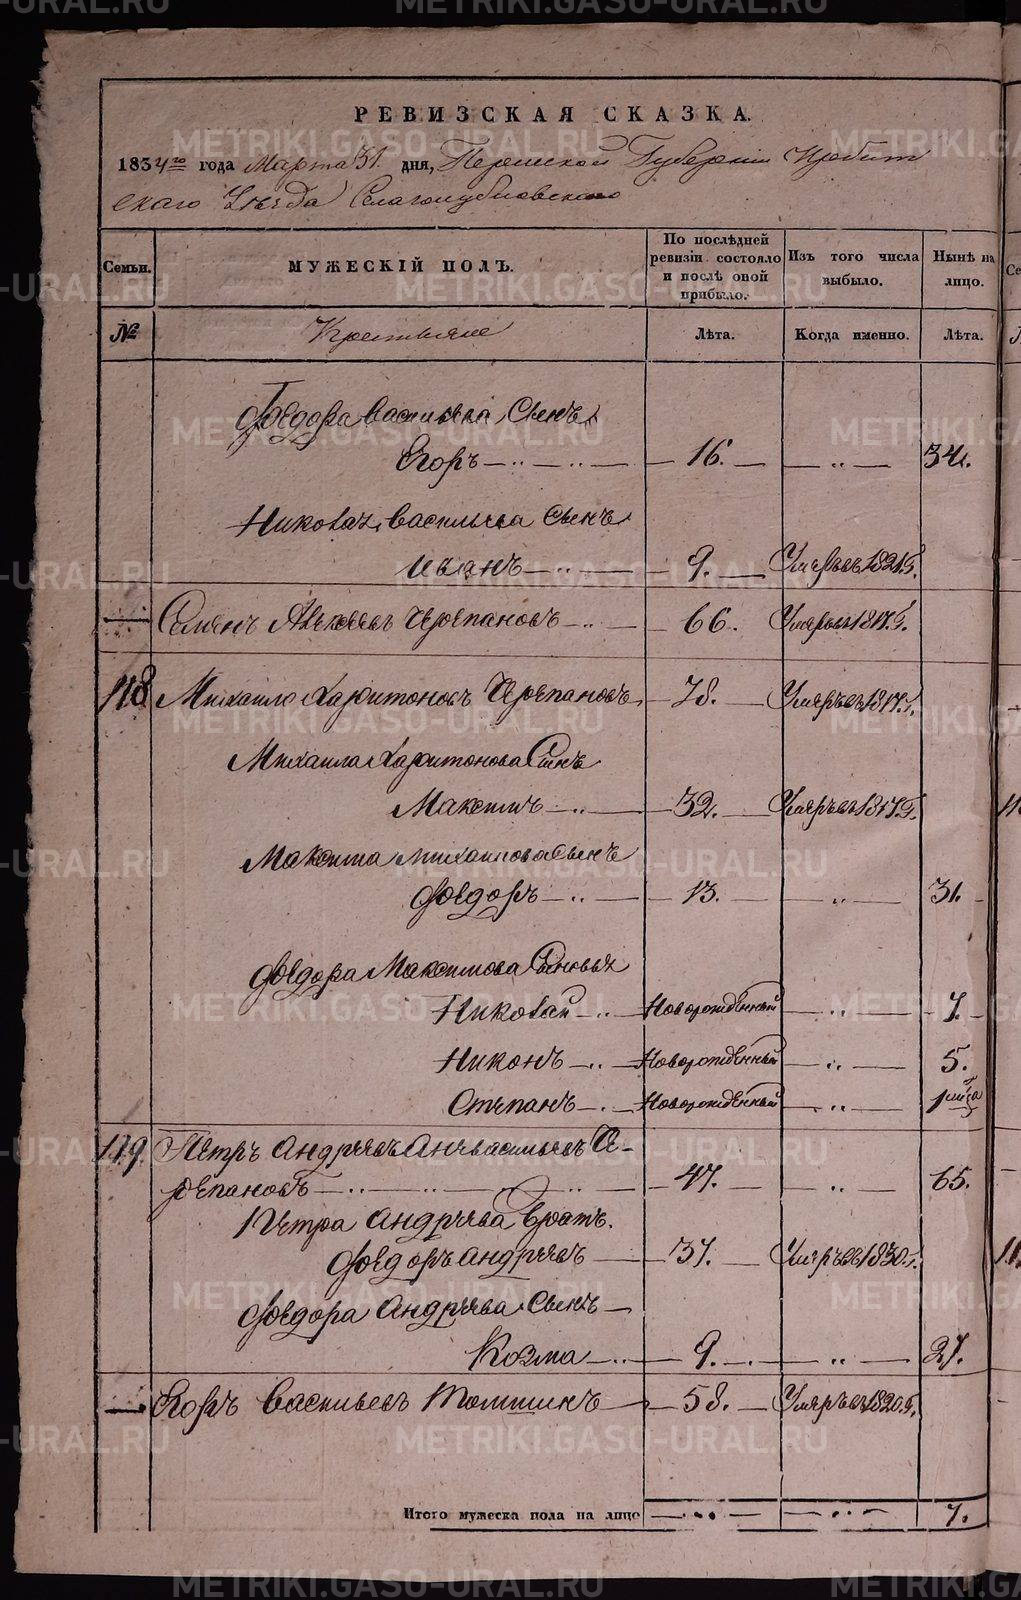 РЕВИЗСКАЯ СКАЗКА.
1834го года Марта 31. дня, Пермской Губернии Ирбит
скаго Уезда
Семьи. МУЖЕСКІЙ ПОЛЪ. По послѣдней ревизіи состояло и послѣ оной прибыло. Изъ того числа выбыло. Нынѣ на лицо.
№ Крестьяне Лѣта. Когда именно. Лѣта.
Фоедора Васильева Сынъ
Егоръ 16. „ 34.
Николая Васильева Сынъ
Иванъ 9. Умеръ въ 1821.г.
Семенъ Алексеевъ Черепановъ 66. Умеръ въ 1817.г.
118 Михаило Харитоновъ Черепановъ 78. Умеръ въ 1817.г.
Михаила Харитонова Сынъ
Максимъ 32. Умеръ въ 1817.г.
Максима Михаилова Сынъ
Фоедоръ 13. „ 31.
Фоедора Максимова Сыновья
Николай Новорожденный „ 7.
Никонъ Новорожденный „ 5.
Степанъ Новорожденный „
119. Петръ Андреевъ Васильевъ Че-
репановъ 47. „ 65.
Петра Андреева Братъ
Фоедоръ Андреевъ 37. Умеръ въ 1830.г.
Фоедора Андреева Сынъ
Козма 9. „ 27.
Егоръ Васильевъ Томшинъ 58. Умеръ въ 1820.г.
Итого мужеска пола на лицо „ „ 7.
METRIKI.GASO-URAL.RU